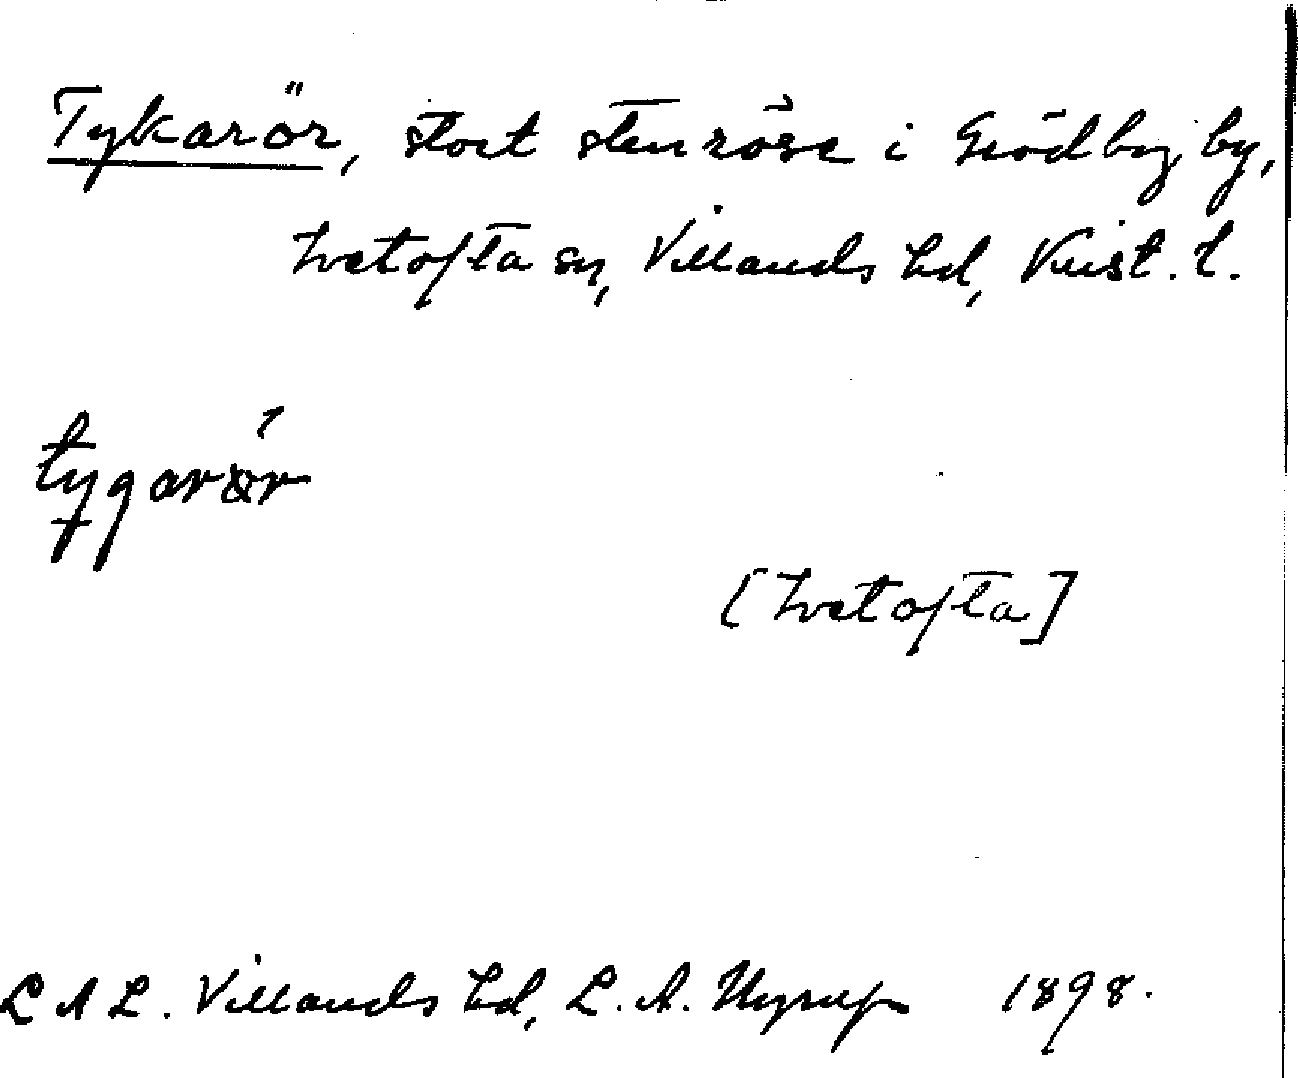 Tykarör, stort stenröse i Grödby by,
Ivetofta sn, Villands hd, Krist. l.
tygarør
[Ivetofta]
L A L. Villands hd, L. A. Nyrup 1898.